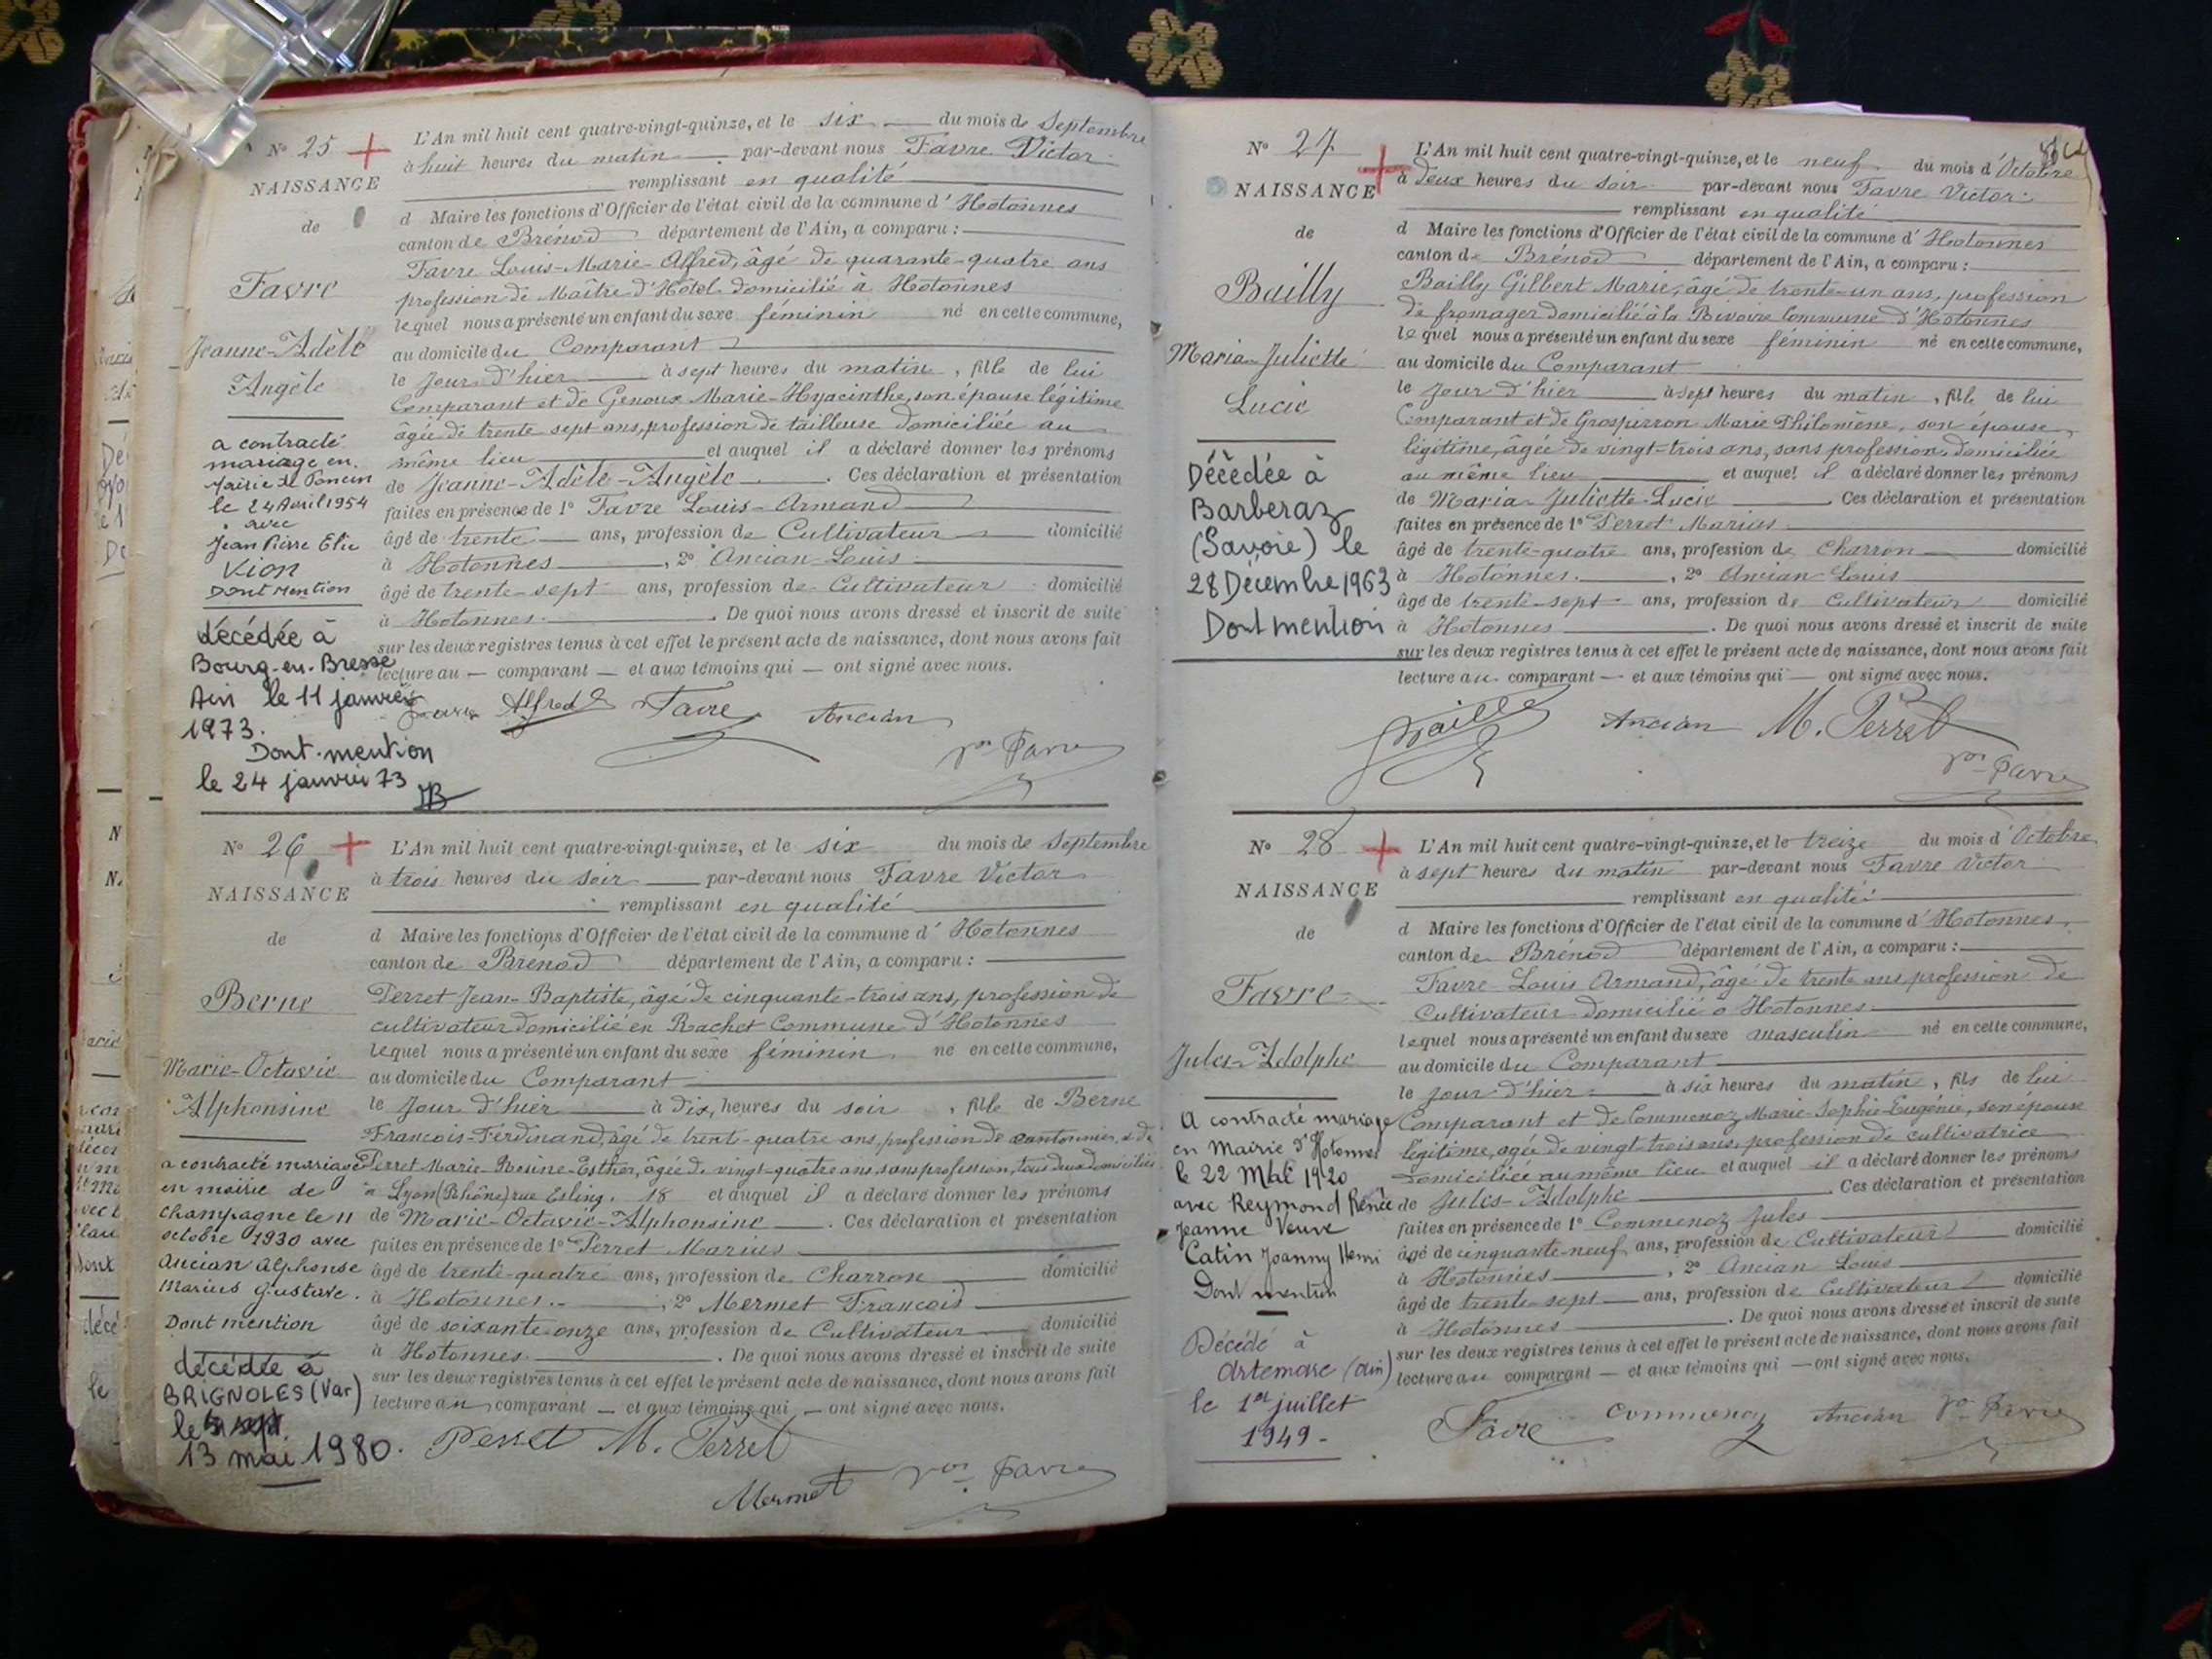 Nº 25
NAISSANCE
de
Favre
Jeanne-Adèle
Angèle
a contracté
mariage en
Mairie de Poncin
le 24 Avril 1954
avec
Jean Pierre Elie
Vion
Dont mention
décédée à
Bourg-en-Bresse
Ain le 11 janvier
1973.
Dont mention
le 24 janvier 73
L'An mil huit cent quatre-vingt-quinze, et le six du mois de Septembre
à huit heures du matin par-devant nous Favre Victor
remplissant en qualité
d Maire les fonctions d'Officier de l'état civil de la commune d' Hotonnes
canton de Brénod département de l'Ain, a comparu :
Favre Louis-Marie-Alfred, âgé de quarante-quatre ans
profession de Maître d'Hôtel domicilié à Hotonnes
lequel nous a présenté un enfant du sexe féminin né en cette commune,
au domicile du Comparant
le jour d'hier à sept heures du matin, fille de lui
Comparant et de Genoux Marie-Hyacinthe, son épouse légitime
âgée de trente sept ans, profession de tailleuse domiciliée au
même lieu et auquel il a déclaré donner les prénoms
de Jeanne-Adèle-Angèle. Ces déclaration et présentation
faites en présence de 1º Favre Louis-Armand
âgé de trente ans, profession de Cultivateur domicilié
à Hotonnes, 2º Ancian Louis
âgé de trente-sept ans, profession de Cultivateur domicilié
à Hotonnes. De quoi nous avons dressé et inscrit de suite
sur les deux registres tenus à cet effet le présent acte de naissance, dont nous avons fait
lecture au comparant et aux témoins qui ont signé avec nous.
Favre Alfred Favre Ancian
Vor Favre
Nº 26
NAISSANCE
de
Berne
Marie-Octavie
Alphonsine
a contracté mariage
en mairie de
Champagne le 11
octobre 1930 avec
Ancian Alphonse
Marius Gustave.
Dont mention
décédée à
BRIGNOLES (Var)
le
13 mai 1980.
L'An mil huit cent quatre-vingt-quinze, et le six du mois de Septembre
à trois heures du soir par-devant nous Favre Victor
remplissant en qualité
d Maire les fonctions d'Officier de l'état civil de la commune d' Hotonnes
canton de Brénod département de l'Ain, a comparu :
Perret Jean-Baptiste, âgé de cinquante-trois ans, profession de
cultivateur domicilié en Rachet Commune d'Hotonnes
lequel nous a présenté un enfant du sexe féminin, né en cette commune,
au domicile du Comparant
le jour d'hier à Dix, heures du soir, fille de Berne
François-Ferdinand, âgé de trente-quatre ans, profession de cantonnier, & de
Perret Marie-Reine-Esther, âgée de vingt-quatre ans, sans profession, tous deux domiciliés
à Lyon (Rhône) rue Esling. 18 et auquel il a déclaré donner les prénoms
de Marie-Octavie-Alphonsine. Ces déclaration et présentation
faites en présence de 1º Perret Marius
âgé de trente-quatre ans, profession de Charron domicilié
à Hotonnes., 2º Mermet François
âgé de soixante-onze ans, profession de Cultivateur domicilié
à Hotonnes. De quoi nous avons dressé et inscrit de suite
sur les deux registres tenus à cet effet le présent acte de naissance, dont nous avons fait
lecture au comparant et aux témoins qui ont signé avec nous.
Perret M. Perret
Mermet Vor Favre
Nº 27
NAISSANCE
de
Bailly
Maria-Juliette
Lucie
Décèdée à
Barberaz
(Savoie) le
28 Décembre 1963
Dont mention
L'An mil huit cent quatre-vingt-quinze, et le neuf du mois d'Octobre
à deux heures du soir par-devant nous Favre Victor
remplissant en qualité
d Maire les fonctions d'Officier de l'état civil de la commune d' Hotonnes
canton de Brénod département de l'Ain, a comparu :
Bailly Gilbert Marie, âgé de trente-un ans, profession
de fromager domicilié à la Bivoire Commune d'Hotonnes
lequel nous a présenté un enfant du sexe féminin né en cette commune,
au domicile du Comparant
le jour d'hier à sept heures du matin, fille de lui
Comparant et de Grospirron Marie Philomène, son épouse
légitime, âgée de vingt-trois ans, sans profession, domiciliée
au même lieu et auquel il a déclaré donner les prénoms
de Maria-Juliette-Lucie. Ces déclaration et présentation
faites en présence de 1º Perret Marius
âgé de trente-quatre ans, profession de Charron domicilié
à Hotonnes., 2º Ancian Louis
âgé de trente-sept ans, profession de Cultivateur domicilié
à Hotonnes. De quoi nous avons dressé et inscrit de suite
sur les deux registres tenus à cet effet le présent acte de naissance, dont nous avons fait
lecture au comparant et aux témoins qui ont signé avec nous.
Bailly Ancian M. Perret
Vor Favre
Nº 28
NAISSANCE
de
Favre
Jules-Adolphe
A contracté mariage
en Mairie d'Hotonnes
le 22 Mai 1920
avec Reymond Renée
Jeanne Veuve
Catin Joanny Henri
Dont mention
Décédé à
Artemare (Ain)
le 1er juillet
1949-
L'An mil huit cent quatre-vingt-quinze, et le treize du mois d' Octobre
à sept heures du matin par-devant nous Favre Victor
remplissant en qualité
d Maire les fonctions d'Officier de l'état civil de la commune d' Hotonnes
canton de Brénod département de l'Ain, a comparu :
Favre Louis Armand, âgé de trente ans profession de
Cultivateur domicilié à Hotonnes
lequel nous a présenté un enfant du sexe masculin né en cette commune,
au domicile du Comparant
le jour d'hier à six heures du matin, fils de lui
Comparant et de Commenoz Marie-Sophie-Eugénie, son épouse
légitime, agée de vingt-trois ans, profession de cultivatrice
domiciliée au même lieu et auquel il a déclaré donner les prénoms
de Jules-Adolphe. Ces déclaration et présentation
faites en présence de 1º Commenoz Jules
âgé de cinquante-neuf ans, profession de Cultivateur domicilié
à Hotonnes, 2º Ancian Louis
âgé de trente-sept ans, profession de Cultivateur domicilié
à Hotonnes. De quoi nous avons dressé et inscrit de suite
sur les deux registres tenus à cet effet le présent acte de naissance, dont nous avons fait
lecture au comparant et aux témoins qui ont signé avec nous.
Favre Commenoz Ancian Vor Favre